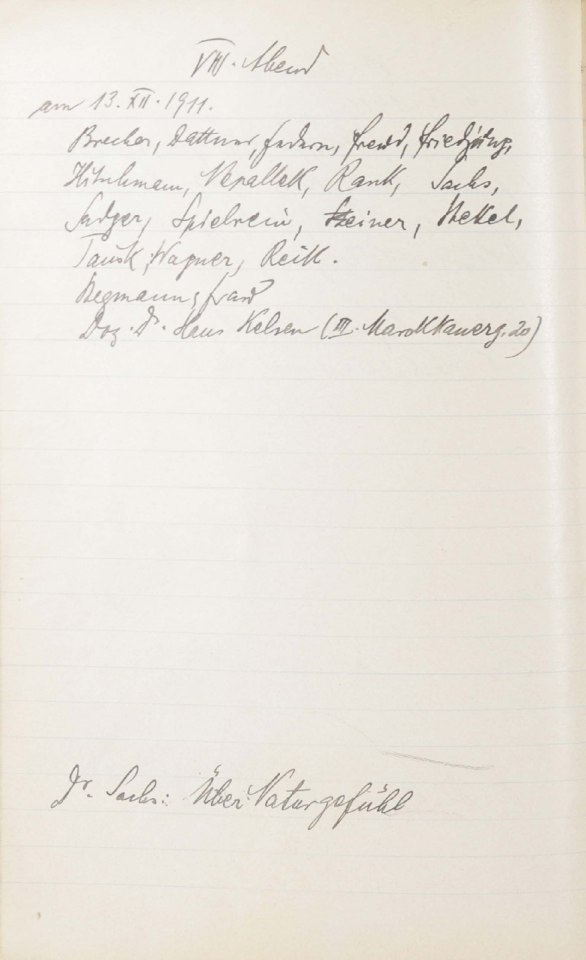 VIII. Abend
am 13. XII. 1911.
Brecher, Dattner, Federn, Freud, Friedjung,
Hitschmann, Nepallek, Rank, Sachs,
Sadger, Spielrein, Steiner, Stekel,
Tausk, Wagner, Reik.
Stegmann, frau
Doz. Dr. Hans Kelsen (III. Marokkanerg. 20)
Dr. Sachs: Über Naturgefühl